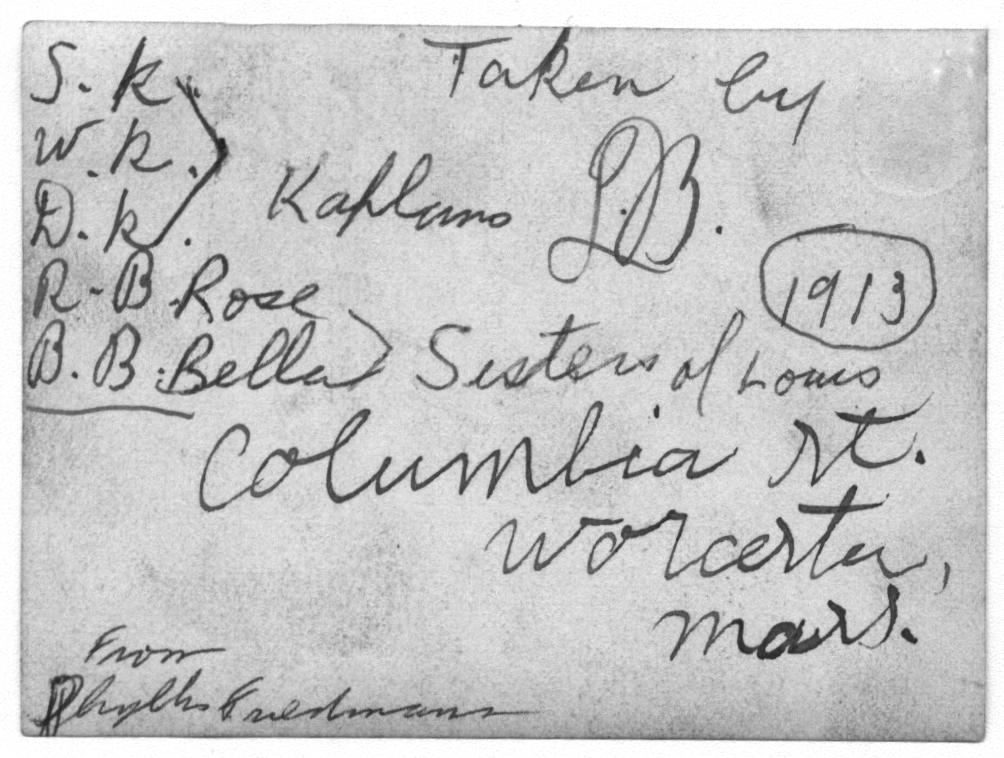 Taken by
L.B.
1913
S. K.
W. K.
D. K.
Kaplans
R. B. Rose
B. B. Bella
Sisters of Louis
Columbia St.
Worcester,
Mass.
From
Phyllis Friedmann